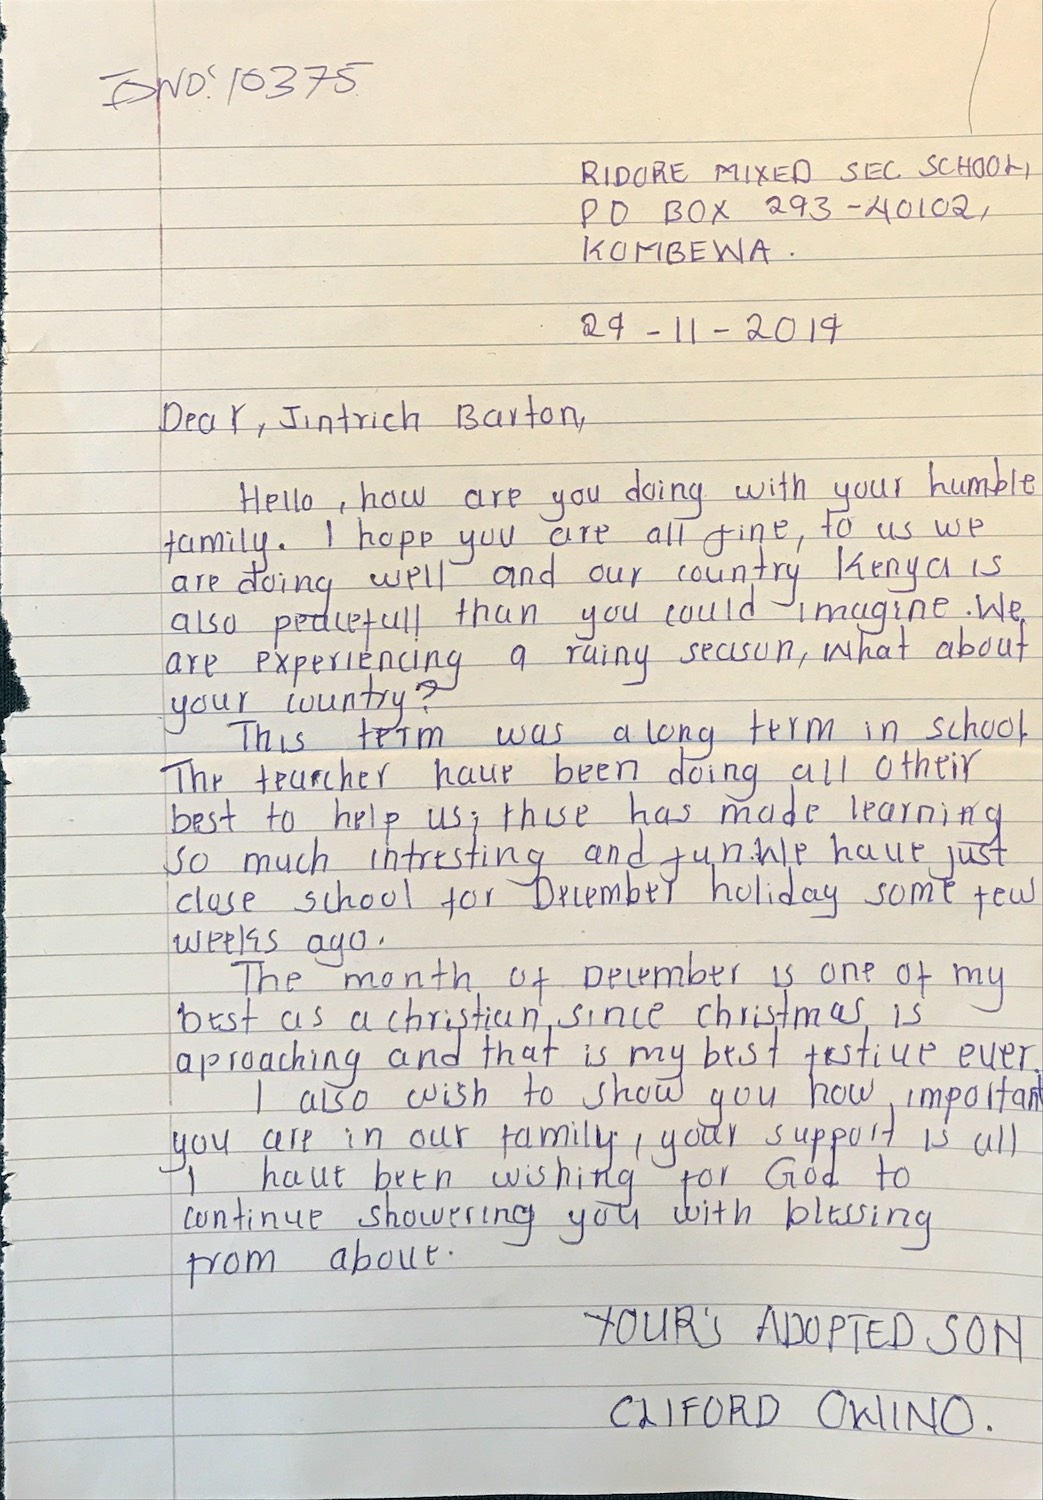 IDNO: 10375
RIDORE MIXED SEC SCHOOL,
PO BOX 293-40102,
KOMBEWA.
29-11-2019
Dear, Jintrich Barton,
Hello, how are you doing with your humble
family. I hope you are all fine, to us we
are doing well and our country Kenya is
also peacefull than you could imagine. We
are experiencing a rainy season, what about
your country?
This term was a long term in school
The tearcher have been doing all otheir
best to help us; thise has made learning
so much intresting and fun. We have just
close school for December holiday some few
weeks ago.
The month of December is one of my
best as a christian, since christmas is
aproaching and that is my best festive ever.
I also wish to show you how important
you are in our family, your support is all
I have been wishing for God to
continue showering you with blessing
from above.
YOUR'S ADOPTED SON
CLIFORD OWINO.